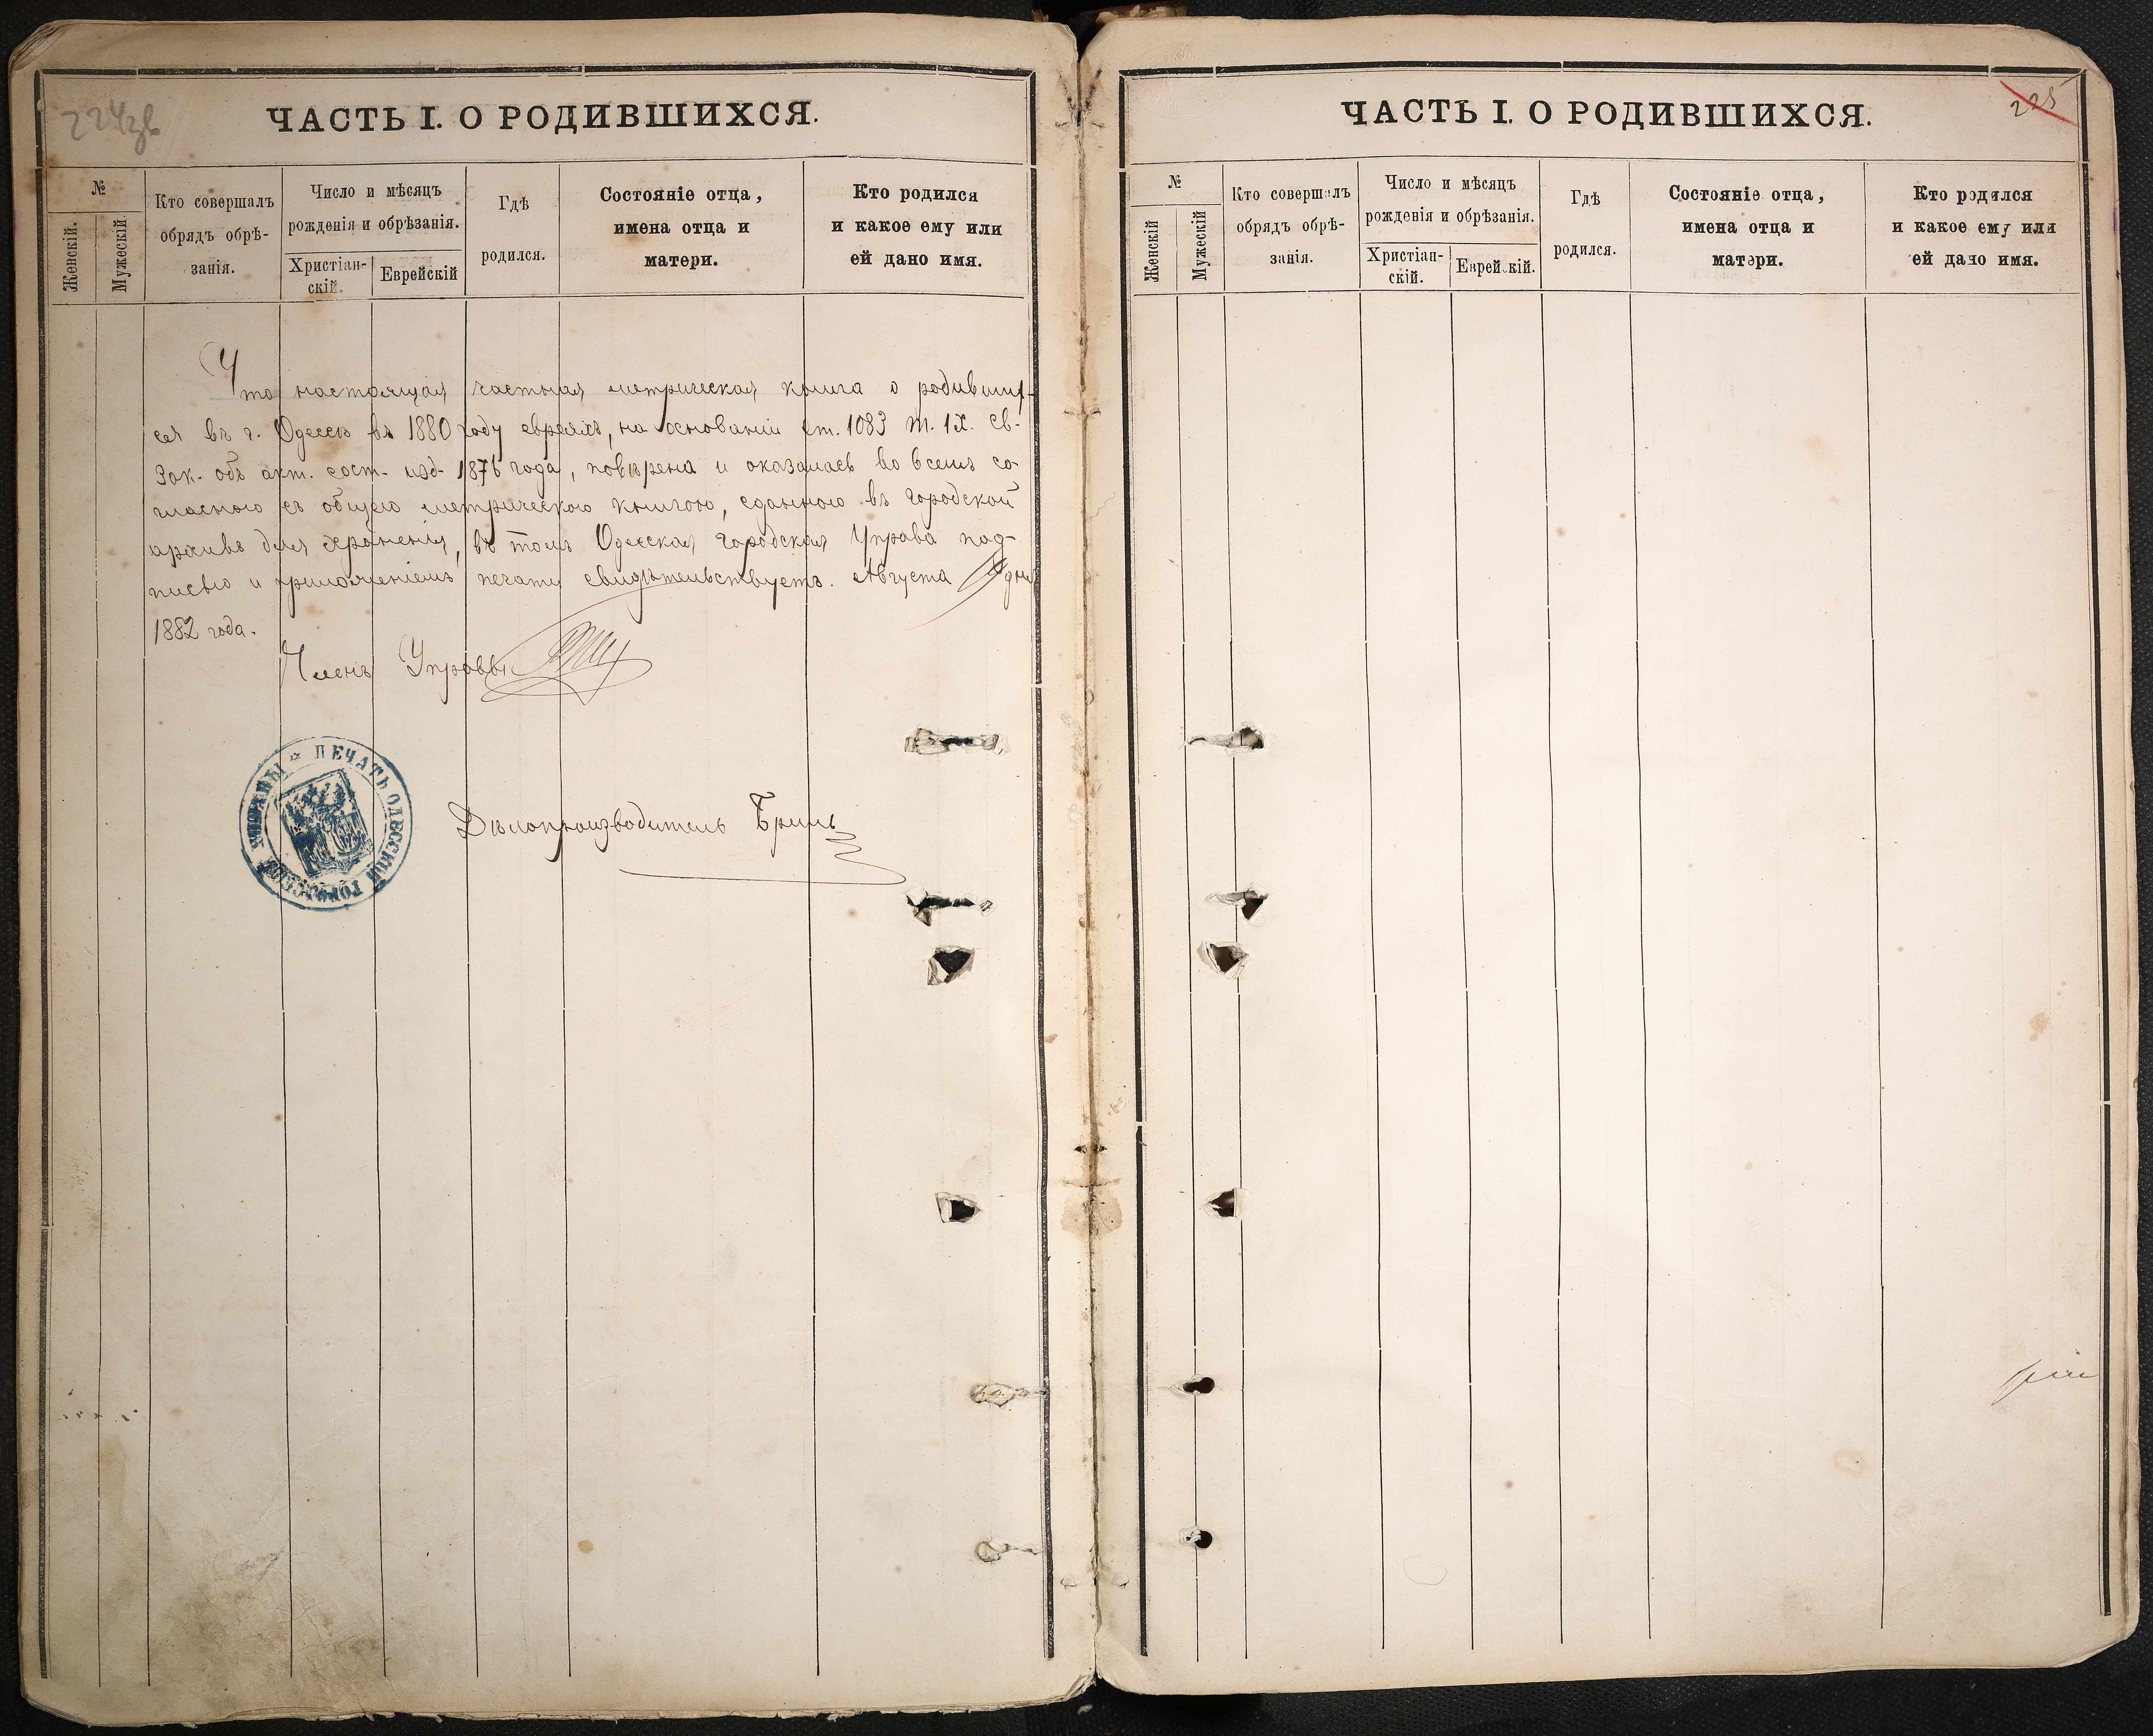 224зв
ЧАСТЬ I. О РОДИВШИХСЯ.
№
Женскій.
Мужескій.
Кто совершалъ
обрядъ обрѣ-
занія.
Число и мѣсяцъ
рожденія и обрѣзанія.
Христіан-
скій.
Еврейскій
Гдѣ
родился.
Состояніе отца,
имена отца и
матери.
Кто родился
и какое ему или
ей дано имя.
Что настоящая частная метрическая книга о родивших-
ся въ г. Одессѣ въ 1880 году евреяхъ, на основаніи ст. 1083 т. IX. Св.
Зак. объ акт. сост. изд. 1876 года, повѣрена и оказалась во всемъ со-
гласною съ общею метрическою книгою, сданною въ Городской
архивъ для храненія, въ томъ Одесская Городская Управа под-
писью и приложеніемъ печати свидѣтельствуетъ. Августа дня
1882 года.
Членъ Управы
ПЕЧАТЬ ОДЕССКОЙ ГОРОДСКОЙ УПРАВЫ
Дѣлопроизводитель
225
ЧАСТЬ I. О РОДИВШИХСЯ.
№
Женскій
Мужескій
Кто совершалъ
обрядъ обрѣ-
занія.
Число и мѣсяцъ
рожденія и обрѣзанія.
Христіан-
скій.
Еврейскій.
Гдѣ
родился.
Состояніе отца,
имена отца и
матери.
Кто родился
и какое ему или
ей дано имя.